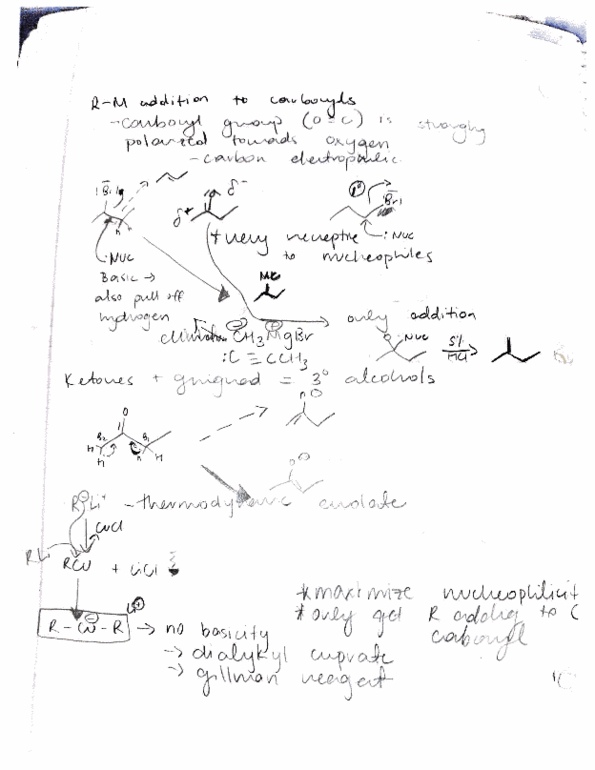 R-M addition to carbonyls
-carbonyl group (O=C) is strongly
polarized towards oxygen
-carbon electrophilic
δ-
δ+
Br
:Nuc
Basic →
also pull off
hydrogen
+ very receptive
to nucleophiles
Br
:Nuc
only addition
elimination
CH3 MgBr
:C≡CCH3
O Nuc
5%
HCl
Ketones + grignard = 3° alcohols
O
B2 B1
H H H H
R Li+ - thermodynamic enolate
CuCl
RLi
RCu + LiCl
R-Cu-R → no basicity
Li
→ dialykyl cuprate
→ gillman reagent
*maximize nucleophilicit
*only get R adding to C
carbonyl